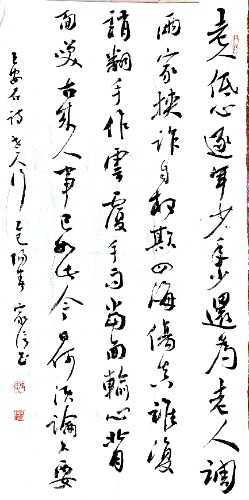 老人低心逐年少年少還為老人調
兩家挾詐自相欺四海傷真誰復
誚翻手作雲覆手雨當面輸心背
面笑古來人事已如此今日何須論久要
王安石詩老人行乙巳陽春家